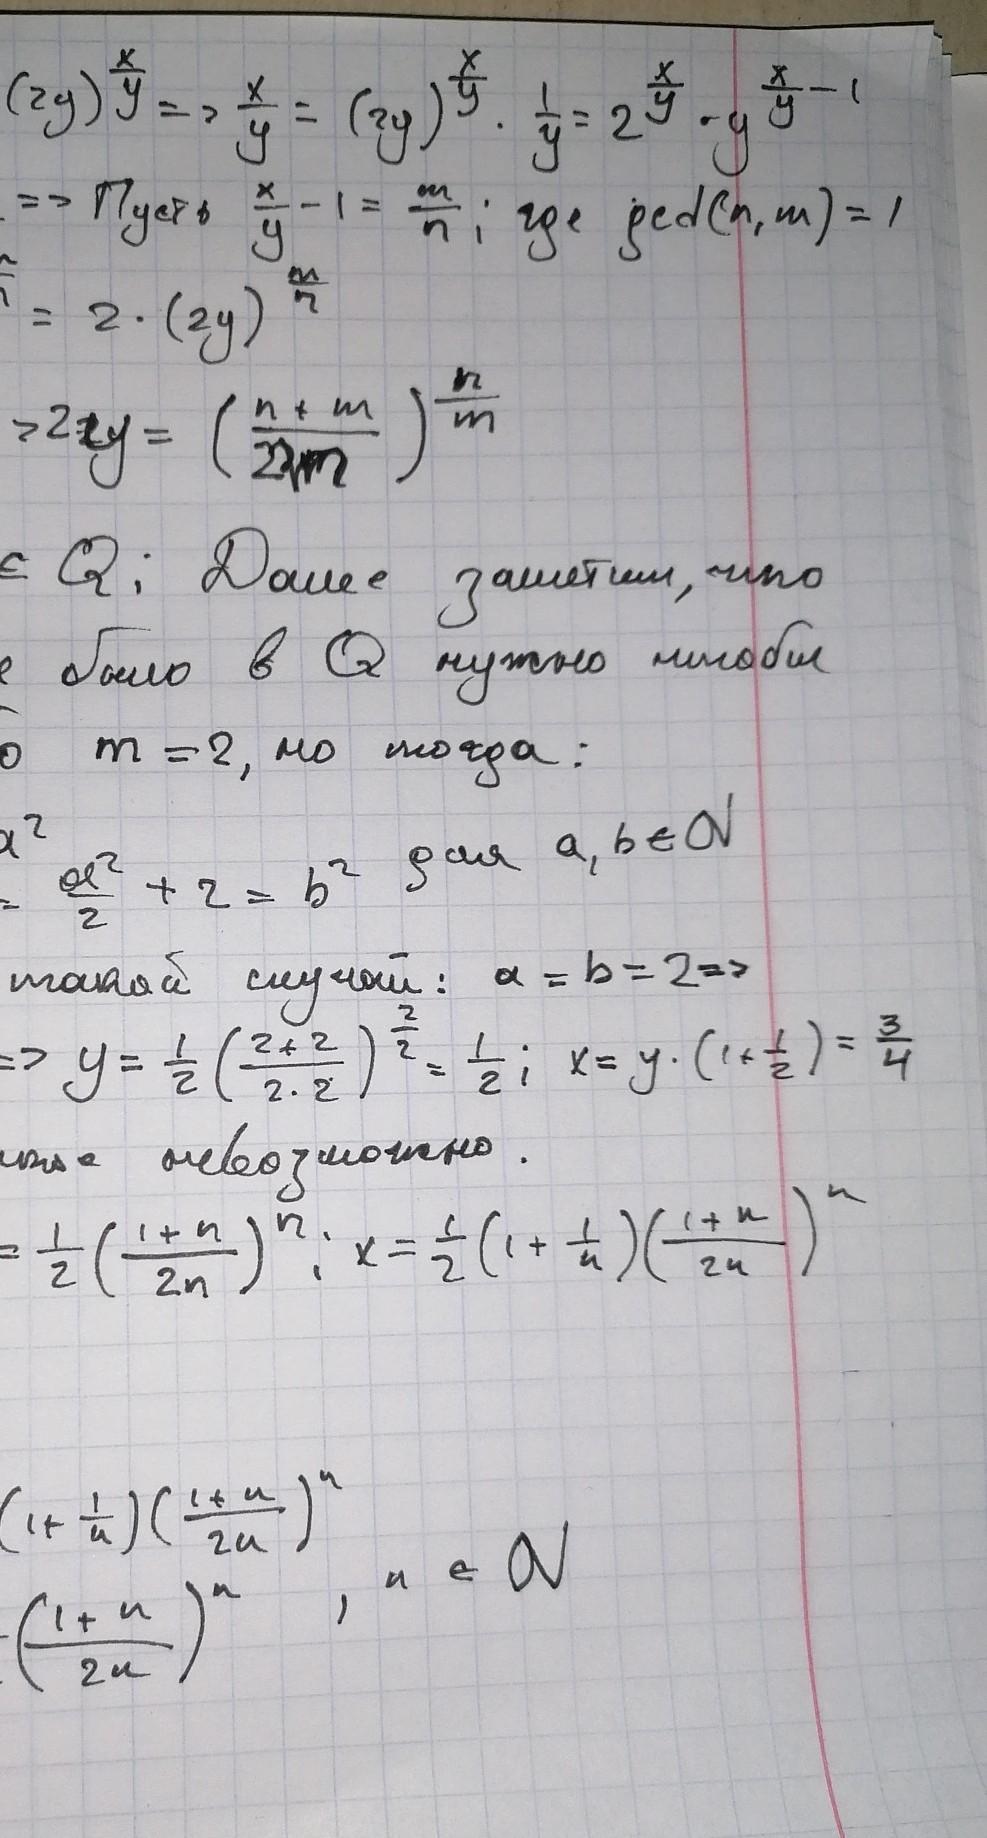 (2y)^{x/y} => x/y = (2y)^{x/y} · 1/y = 2^{x/y} · y^{x/y - 1}
=> Пусть x/y - 1 = m/n ; где gcd(n, m) = 1
= 2 · (2y)^{m/n}
y = ((n + m)/)^{n/m}
∈ Q; Далее заметим, что
было в Q нужно чтобы
m = 2, но тогда:
a²
= a²/2 + 2 = b² для a, b ∈ N
такой случай: a = b = 2 =>
=> y = 1/2 ((2+2)/(2·2))^{2/2} = 1/2 ; x = y · (1 + 1/2) = 3/4
невозможно.
= 1/2 ((1+n)/2n)^n ; x = 1/2 (1 + 1/n)((1+n)/2n)^n
(1 + 1/n)((1+n)/2n)^n
((1+n)/2n)^n , n ∈ N